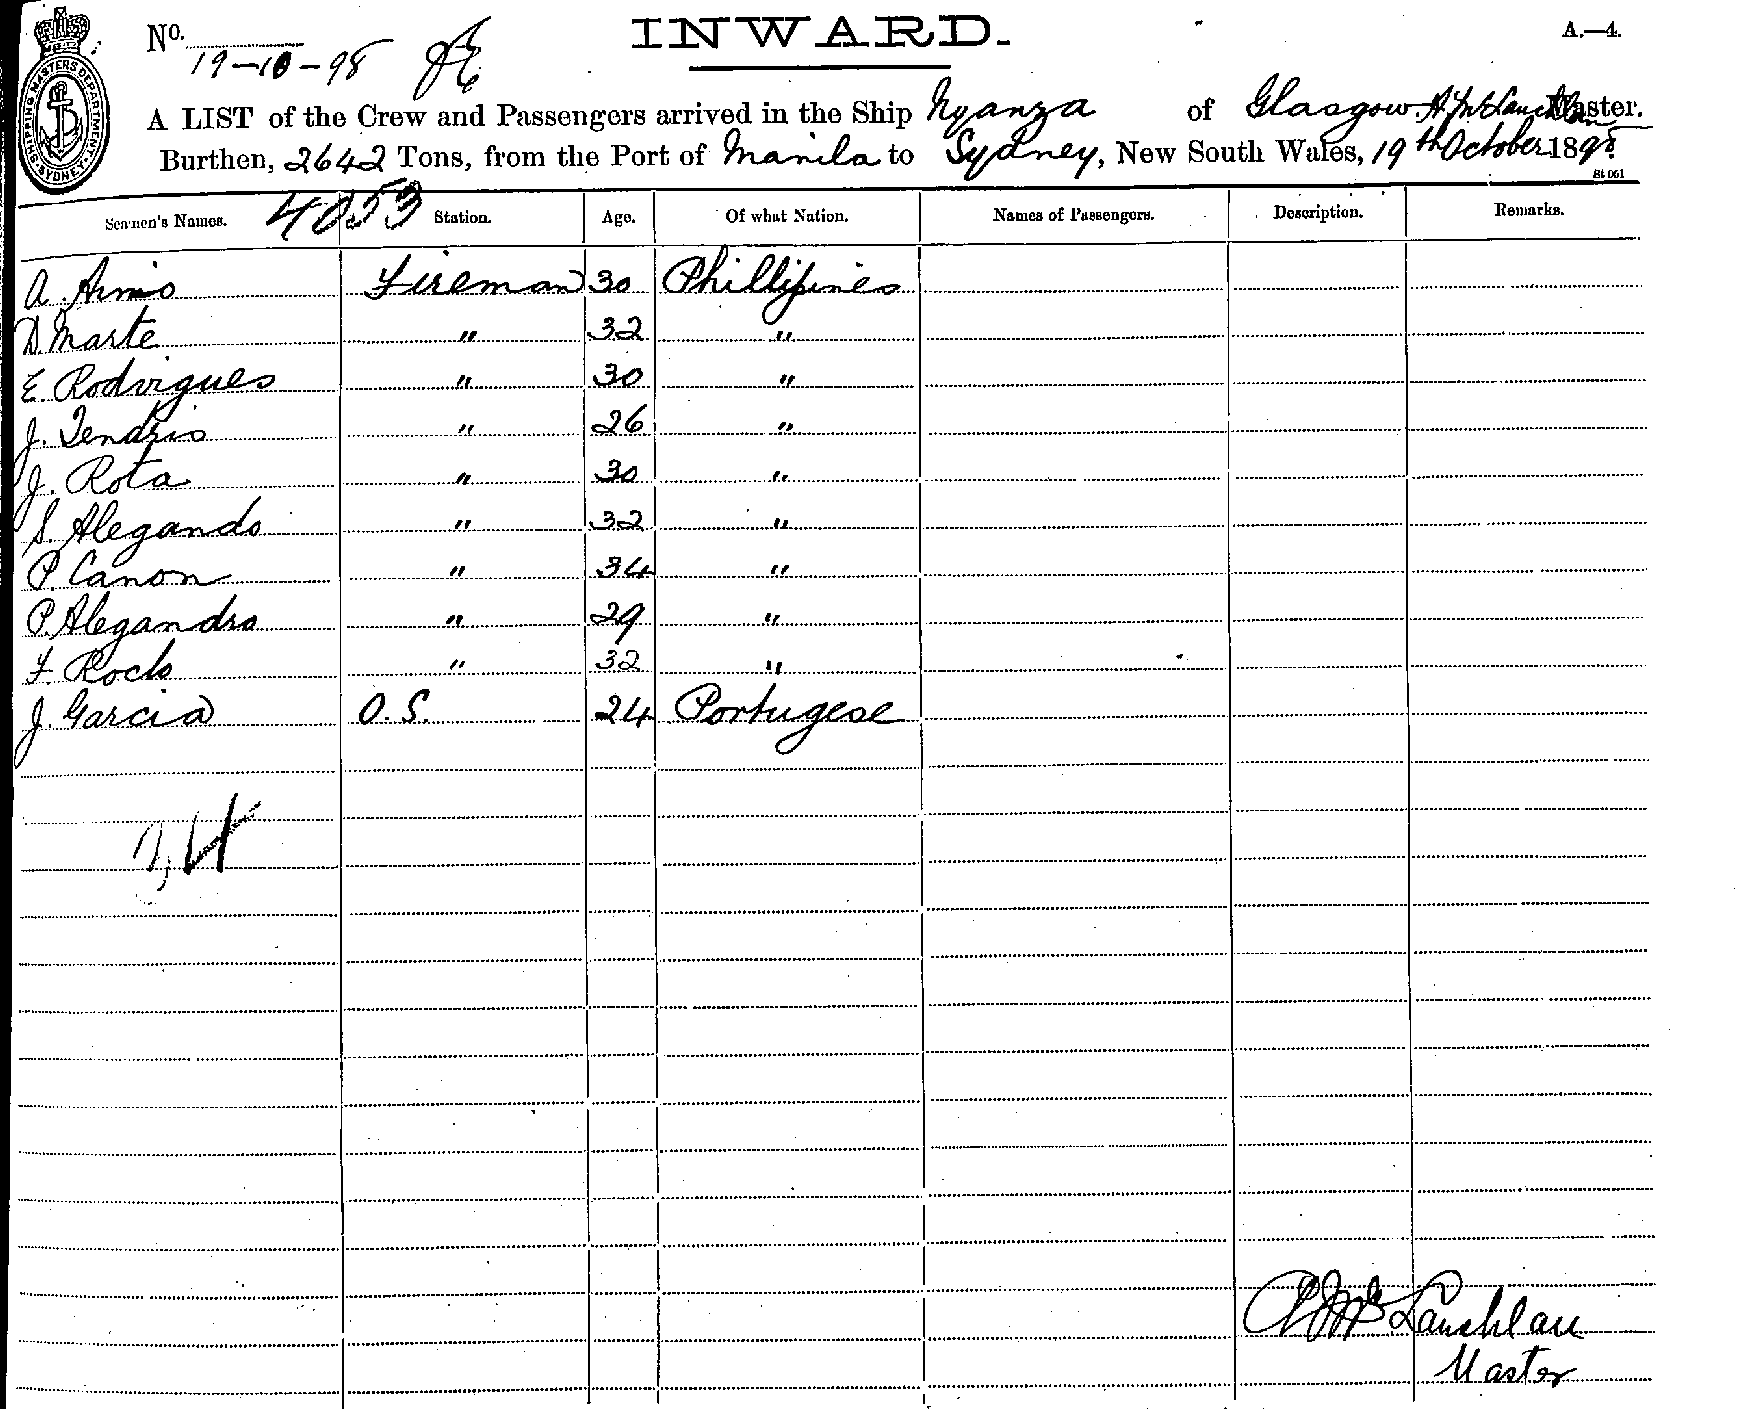 SHIPPING MASTERS DEPARTMENT SYDNEY
No.
19-10-98
INWARD.
A.—4.
A LIST of the Crew and Passengers arrived in the Ship Nyanza of Glasgow. A. J. McLauchlan Master.
Burthen, 2642 Tons, from the Port of Manila to Sydney, New South Wales, 19th October 1898.
St 061
4053
Seamen's Names. Station. Age. Of what Nation. Names of Passengers. Description. Remarks.
A. Fireman 30 Phillipines
D. Marte " 32 "
E. Rodrigues " 30 "
J. " 26 "
J. Rota " 30 "
S. Alegando " 32 "
P. Canon " 34 "
P. Alegandro " 29 "
F. " 32 "
J. Garcia O.S. 24 Portugese
McLauchlan
Master